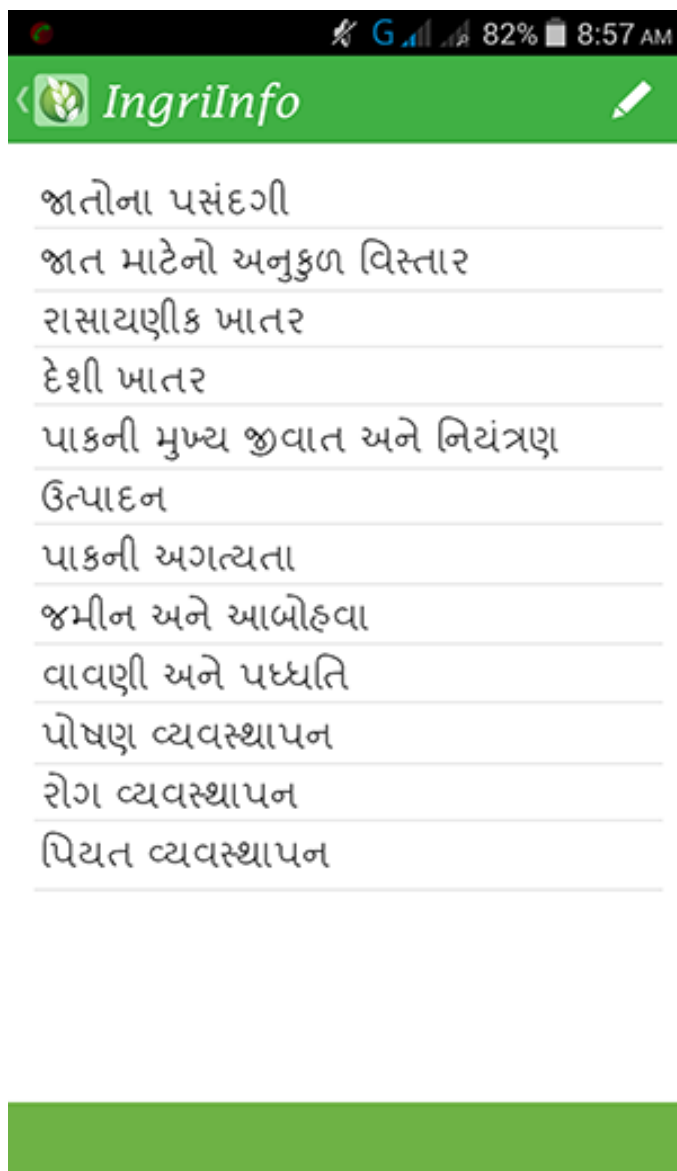 G 82% 8:57 AM
IngriInfo
જાતોના પસંદગી
જાત માટેનો અનુકુળ વિસ્તાર
રાસાયણીક ખાતર
દેશી ખાતર
પાકની મુખ્ય જીવાત અને નિયંત્રણ
ઉત્પાદન
પાકની અગત્યતા
જમીન અને આબોહવા
વાવણી અને પધ્ધતિ
પોષણ વ્યવસ્થાપન
રોગ વ્યવસ્થાપન
પિયત વ્યવસ્થાપન